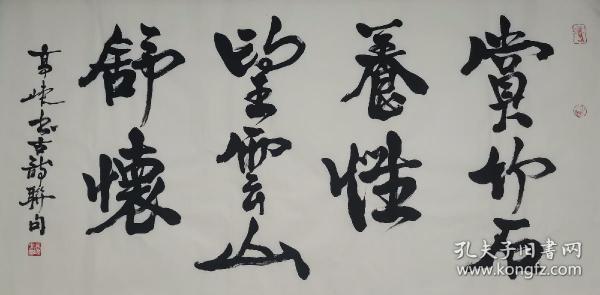 賞竹石
養性
望雲山
舒懷
高峡书古诗联句
孔夫子旧书网
www.kongfz.com